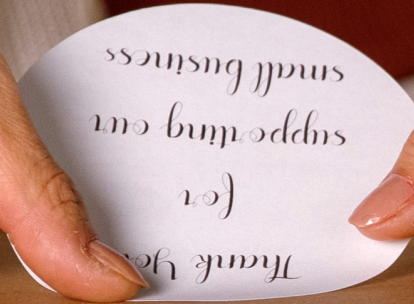 Thank You
for
supporting our
small business